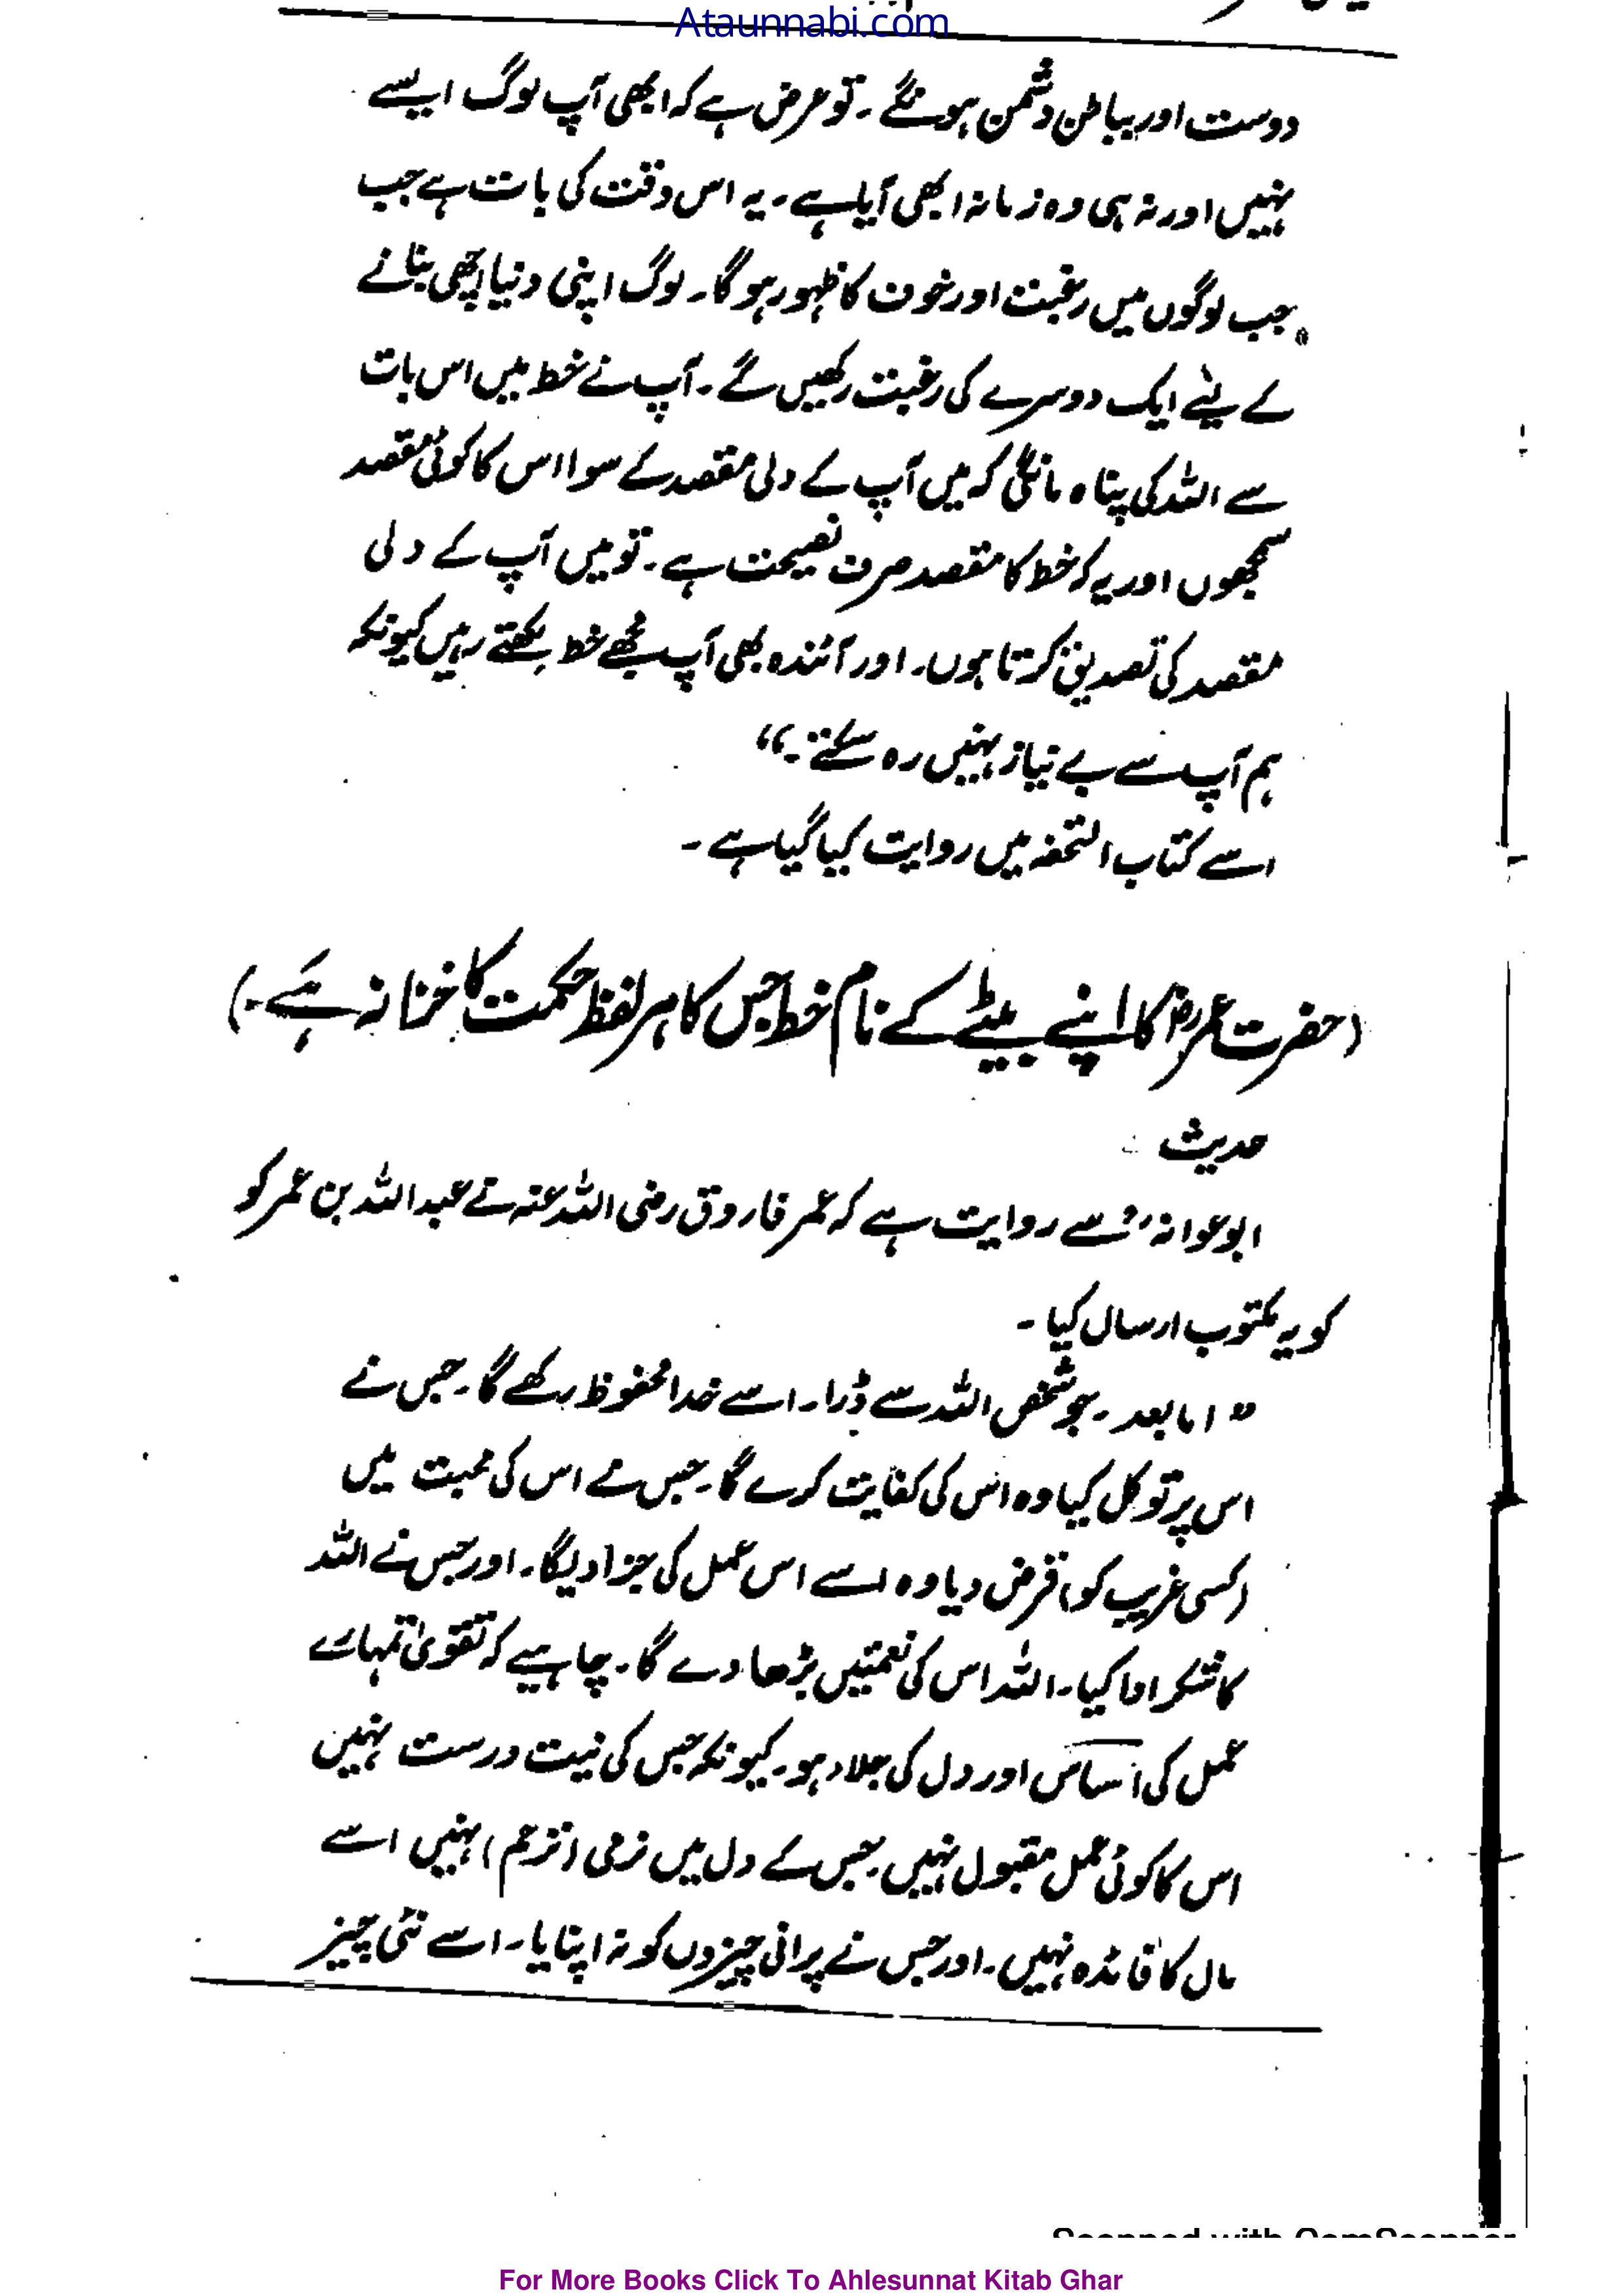 Ataunnabi.com
دوست اور بباطن دشمن ہونگے ۔ تو عرض ہے کہ ابھی آپ لوگ ایسے
نہیں اور نہ ہی وہ زمانہ ابھی آیا ہے ۔ یہ اس وقت کی بات ہے جب
جب لوگوں میں رغبت اور خوف کا ظہور ہو گا۔ لوگ اپنی دنیا اچھی بنانے
کے لیے ایک دوسرے کی رغبت رکھیں گے ۔ آپ نے خط میں اس بات
سے اللہ کی پناہ مانگی کہ میں آپ کے دلی مقصد کے سوا اس کا کوئی مقصد
سمجھوں اور یہ کہ خط کا مقصد صرف نصیحت ہے ۔ تو میں آپ کے دلی
مقصد کی تصدیق کرتا ہوں۔ اور آئندہ بھی آپ مجھے خط لکھتے رہیں کیونکہ
ہم آپ سے بے نیاز نہیں رہ سکتے ۔“
اسے کتاب التحفہ میں روایت کیا گیا ہے ۔
(حضرت عمرؓ کا اپنے بیٹے کے نام خط جس کا ہر لفظ حکمت کا خزانہ ہے ۔)
حدیث
ابو عوانہؒ سے روایت ہے کہ عمر فاروق رضی اللہ عنہ نے عبداللہ بن عمر کو
کو یہ مکتوب ارسال کیا ۔
” اما بعد ۔ جو شخص اللہ سے ڈرا۔ اسے خدا محفوظ رکھے گا۔ جس نے
اس پر توکل کیا وہ اس کی کفایت کرے گا۔ جس نے اس کی محبت میں
(کسی غریب کو) قرض دیا وہ اسے اس عمل کی جزا دیگا۔ اور جس نے اللہ
کا شکر ادا کیا۔ اللہ اس کی نعمتیں بڑھا دے گا۔ چاہیے کہ تقویٰ تمہارے
عمل کی اساس اور دل کی جلاء ہو۔ کیونکہ جس کی نیت درست نہیں
اس کا کوئی عمل مقبول نہیں۔ جس کے دل میں نرمی (ترحم) نہیں اسے
مال کا فائدہ نہیں۔ اور جس نے پرانی چیزوں کو نہ اپنایا۔ اسے نئی چیز
Scanned with CamScanner
For More Books Click To Ahlesunnat Kitab Ghar